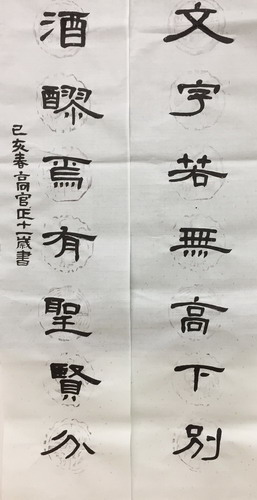 文字若無高下別
酒醪焉有聖賢分
己亥春高官正十一歲書